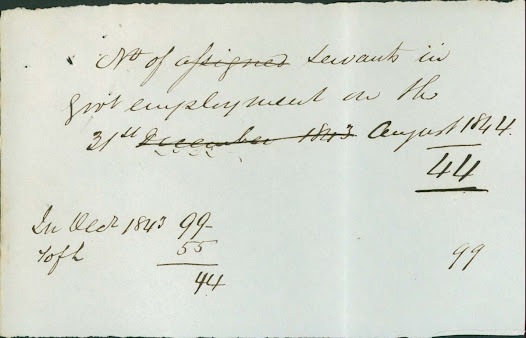 No of assigned servants in
Govt employment on the
31st December 1843 August 1844.
44
In Decr 1843 99
55
44
99